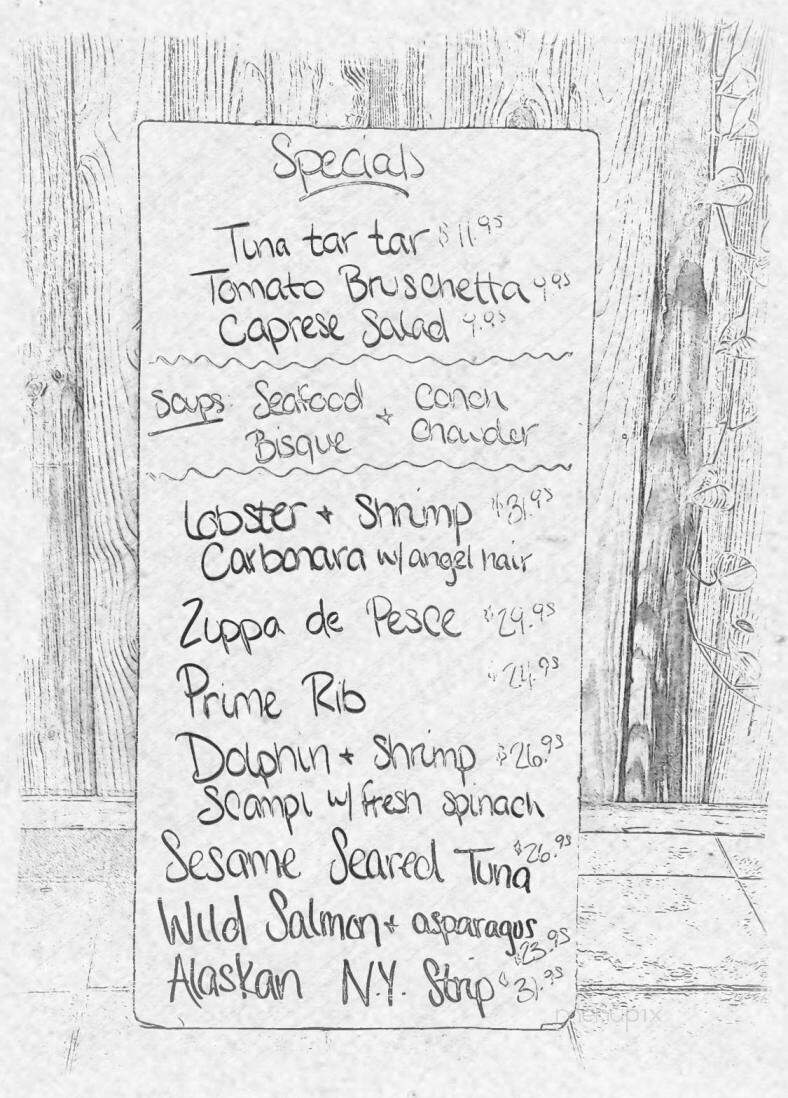 Specials
Tuna tar tar $11.95
Tomato Bruschetta 9.95
Caprese Salad 9.95
Soups: Seafood Bisque + Conch Chowder
Lobster + Shrimp $31.95
Carbonara w/ angel hair
Zuppa de Pesce $29.95
Prime Rib $24.95
Dolphin + Shrimp $26.95
Scampi w/ fresh spinach
Sesame Seared Tuna $26.95
Wild Salmon + asparagus $23.95
Alaskan N.Y. Strip $31.95